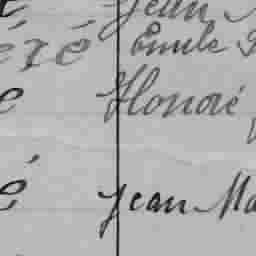 Jean
éré Emile
e Honoré
é Jean Ma